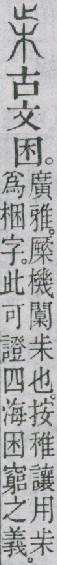 𣏔古文困。
廣雅。橜機闑𣏔也。按稚讓用𣏔
爲梱字。此可證四海困窮之義。